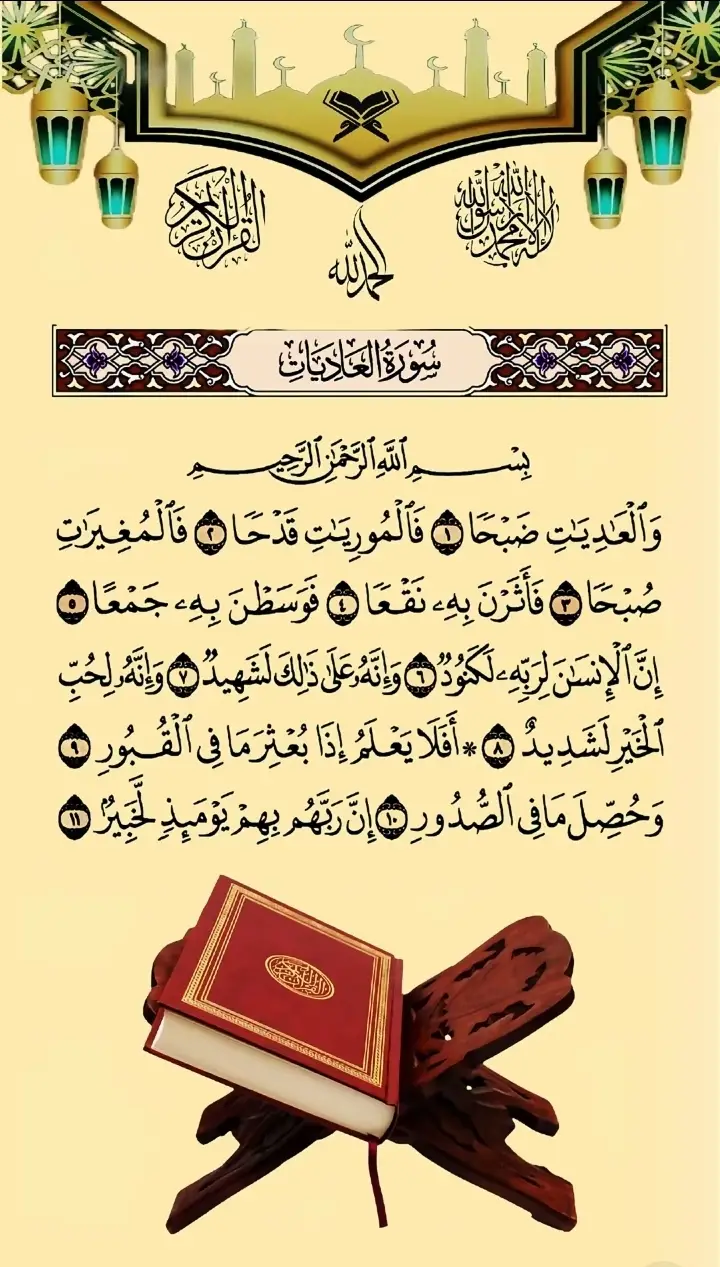 لا إله إلا الله محمد رسول الله
القرآن الكريم
الحمد لله
سُورَةُ الْعَادِيَاتِ
بِسْمِ ٱللَّهِ ٱلرَّحْمَٰنِ ٱلرَّحِيمِ
وَٱلْعَٰدِيَٰتِ ضَبْحًا ١ فَٱلْمُورِيَٰتِ قَدْحًا ٢ فَٱلْمُغِيرَٰتِ
صُبْحًا ٣ فَأَثَرْنَ بِهِۦ نَقْعًا ٤ فَوَسَطْنَ بِهِۦ جَمْعًا ٥
إِنَّ ٱلْإِنسَٰنَ لِرَبِّهِۦ لَكَنُودٌ ٦ وَإِنَّهُۥ عَلَىٰ ذَٰلِكَ لَشَهِيدٌ ٧ وَإِنَّهُۥ لِحُبِّ
ٱلْخَيْرِ لَشَدِيدٌ ٨ * أَفَلَا يَعْلَمُ إِذَا بُعْثِرَ مَا فِى ٱلْقُبُورِ ٩
وَحُصِّلَ مَا فِى ٱلصُّدُورِ ١٠ إِنَّ رَبَّهُم بِهِمْ يَوْمَئِذٍ لَّخَبِيرٌۢ ١١
القرآن الكريم